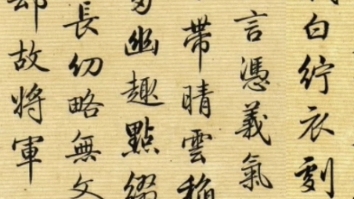 白紵衣
言憑義氣
帶晴雲
幽趣點綴
長幼略無文
故將軍